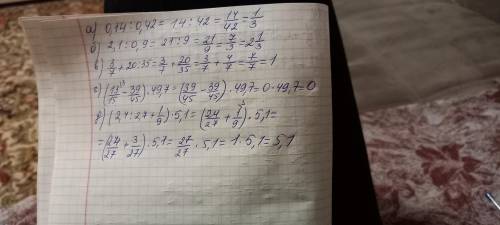 а) 0,14 : 0,42 = 14 : 42 = 14/42 = 1/3
б) 2,1 : 0,9 = 21 : 9 = 21/9 = 7/3 = 2 1/3
в) 3/7 + 20:35 = 3/7 + 20/35 = 3/7 + 4/7 = 7/7 = 1
г) (13/15 - 39/45) · 49,7 = (39/45 - 39/45) · 49,7 = 0 · 49,7 = 0
д) (24 : 27 + 1/9) · 5,1 = (24/27 + 1/9) · 5,1 =
= (24/27 + 3/27) · 5,1 = 27/27 · 5,1 = 1 · 5,1 = 5,1